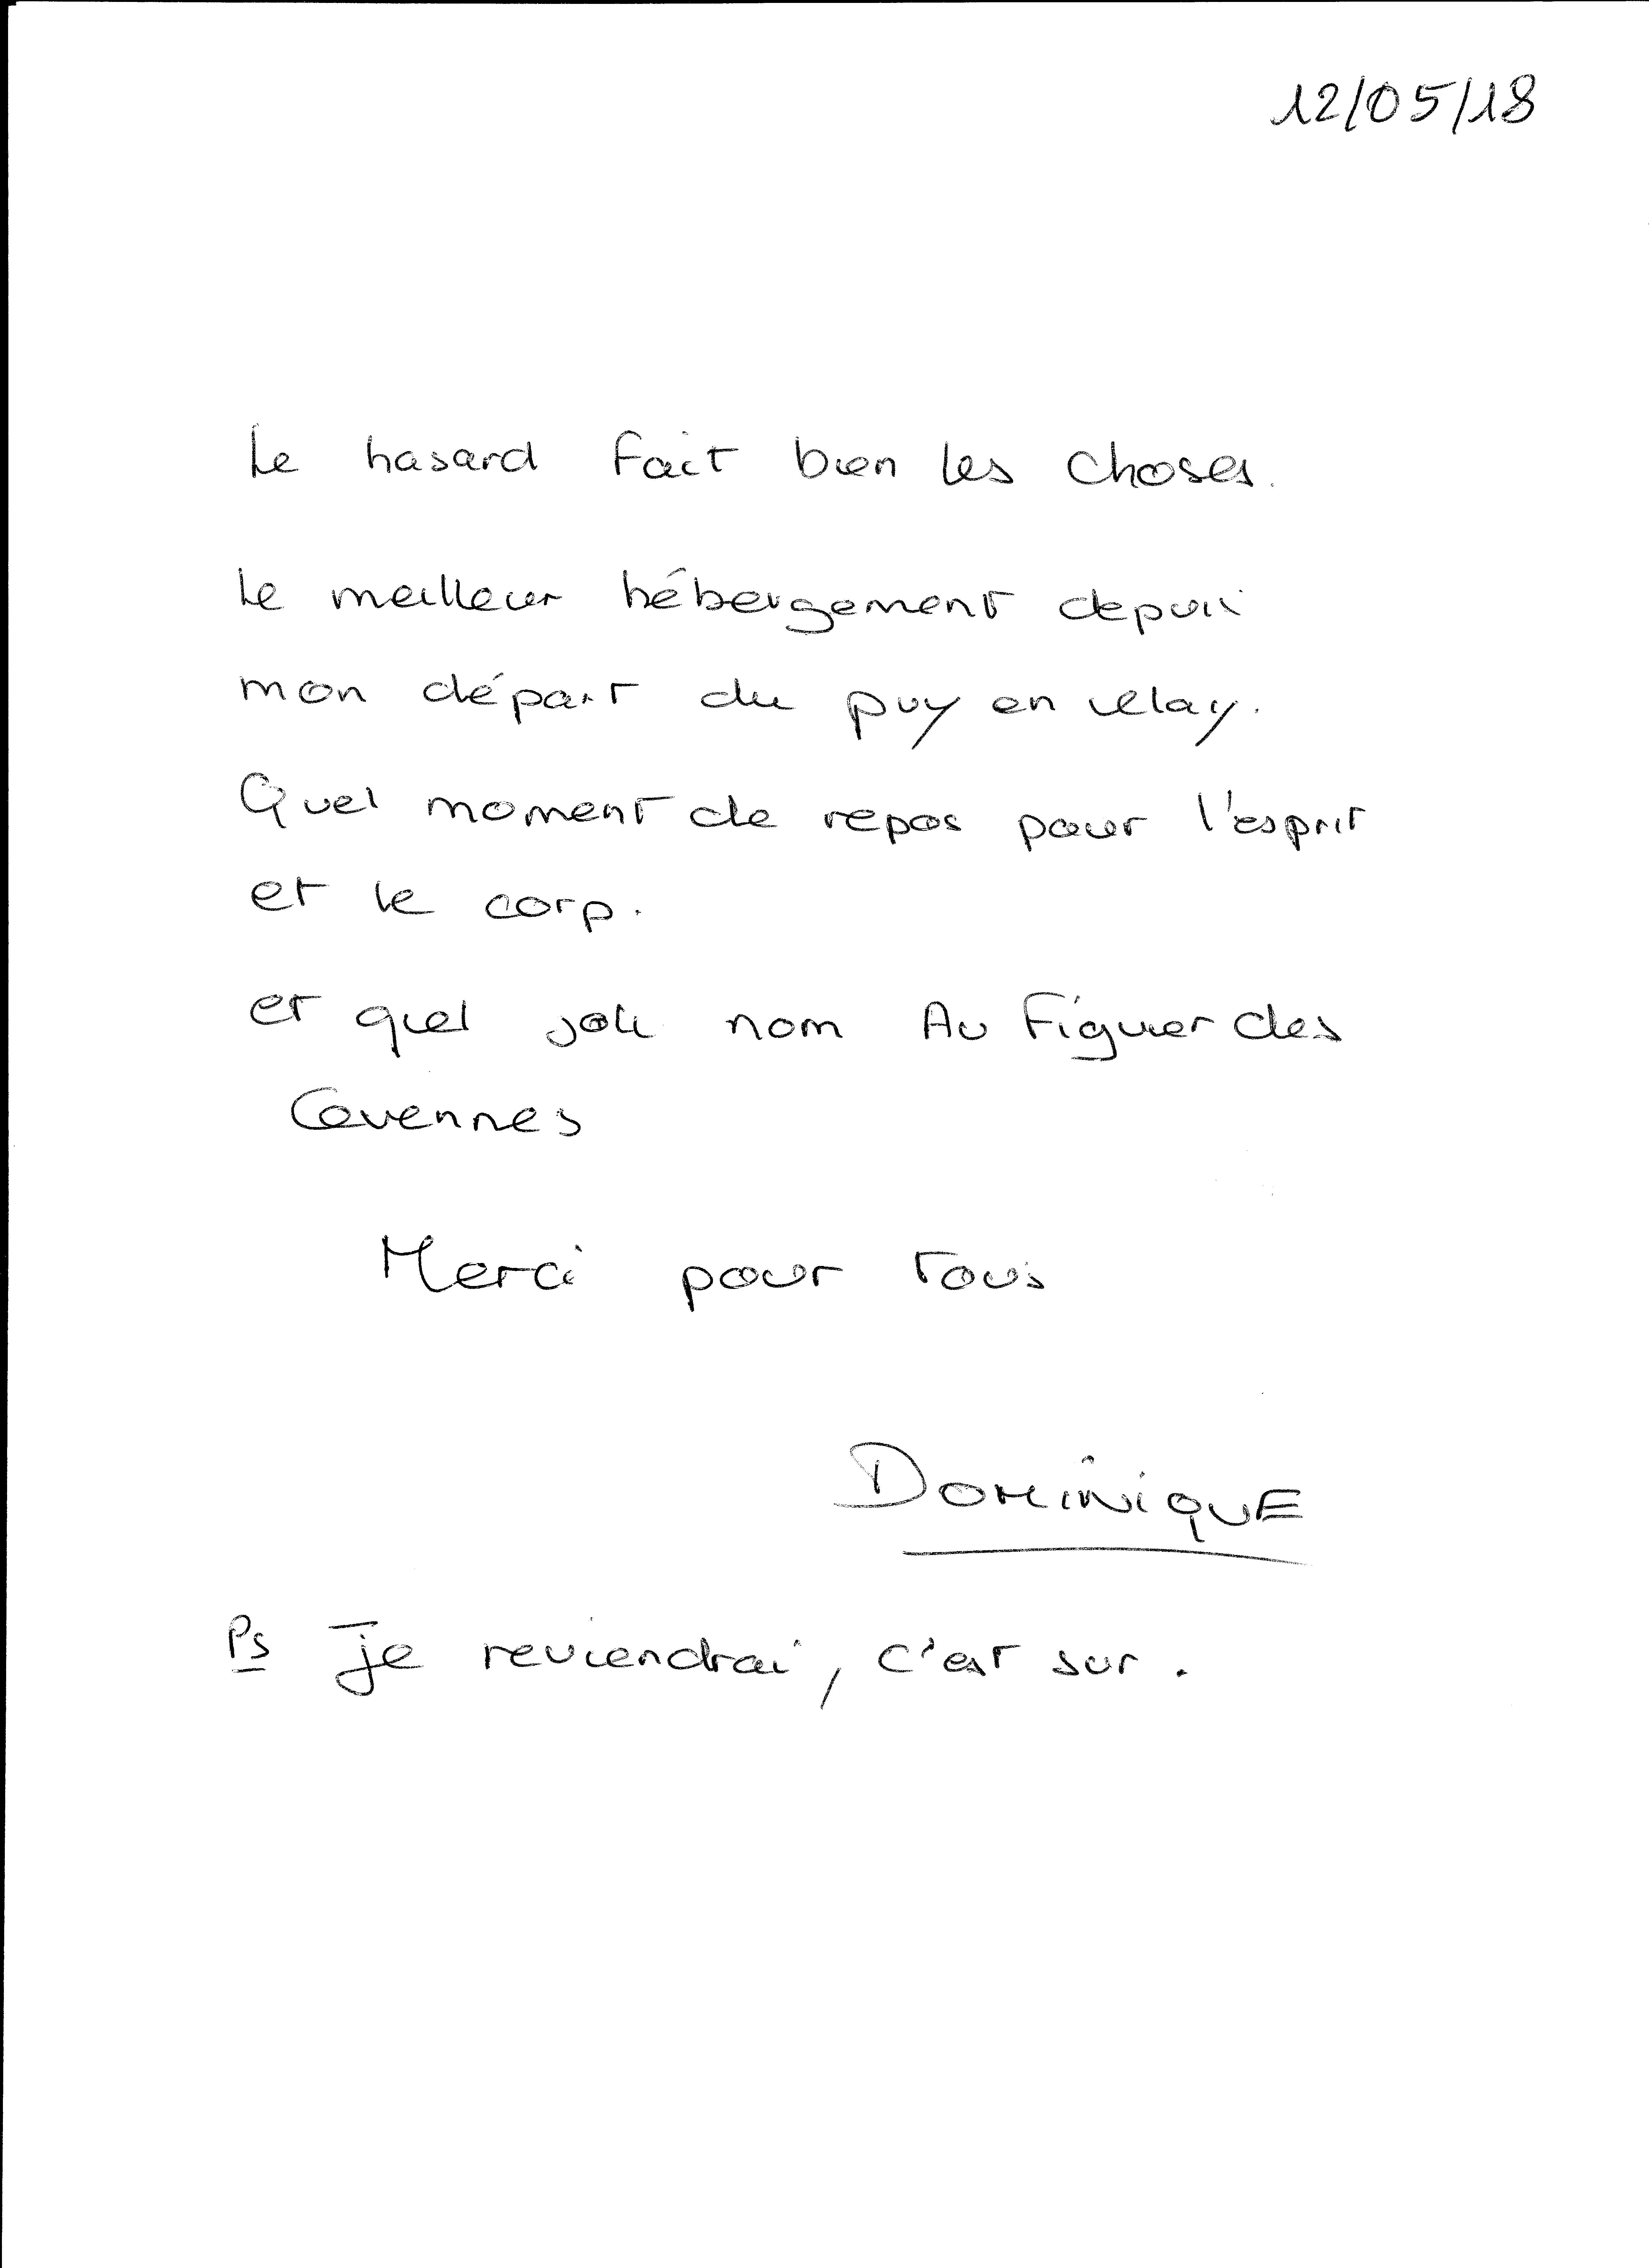 12/05/18
Le hasard fait bien les choses.
Le meilleur hébergement depuis
mon départ du puy en velay.
Quel moment de repos pour l'esprit
et le corp.
et quel joli nom Au Figuier des
Cevennes
Merci pour tous
DOMINIQUE
Ps Je reviendrai, c'est sur.